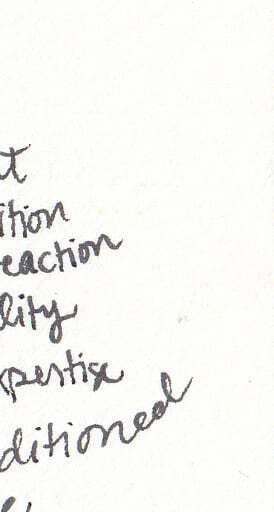 t
ition
eaction
lity
xpertise
ditioned